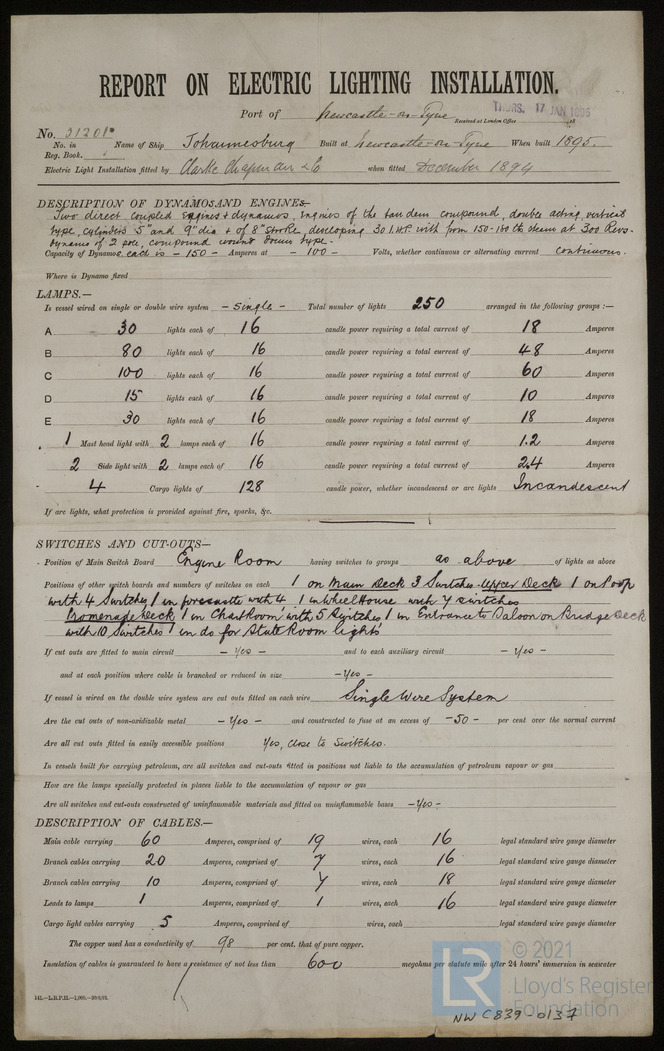 REPORT ON ELECTRIC LIGHTING INSTALLATION.
Port of Newcastle-on-Tyne Received at London Office THURS. 17 JAN 1895
No. 31201
No. in Reg. Book. Name of Ship Johannesburg Built at Newcastle-on-Tyne When built 1895.
Electric Light Installation fitted by Clarke Chapman & Co when fitted December 1894
DESCRIPTION OF DYNAMOS AND ENGINES—
Two direct coupled Engines & dynamos, Engines of the tandem, compound, double acting, vertical
type, cylinders 5" and 9" dia & of 8" stroke, developing 30 I.H.P. with from 150-160 lbs steam at 300 Revs.
Dynamo of 2 pole, compound wound drum type.
Capacity of Dynamos each is - 150 - Amperes at - 100 - Volts, whether continuous or alternating current continuous.
Where is Dynamo fixed
LAMPS.—
Is vessel wired on single or double wire system - Single - Total number of lights 250 arranged in the following groups :—
A 30 lights each of 16 candle power requiring a total current of 18 Amperes
B 80 lights each of 16 candle power requiring a total current of 48 Amperes
C 100 lights each of 16 candle power requiring a total current of 60 Amperes
D 15 lights each of 16 candle power requiring a total current of 10 Amperes
E 30 lights each of 16 candle power requiring a total current of 18 Amperes
1 Mast head light with 2 lamps each of 16 candle power requiring a total current of 1.2 Amperes
2 Side light with 2 lamps each of 16 candle power requiring a total current of 2.4 Amperes
4 Cargo lights of 128 candle power, whether incandescent or arc lights Incandescent
If arc lights, what protection is provided against fire, sparks, &c.
SWITCHES AND CUT-OUTS—
Position of Main Switch Board Engine Room having switches to groups as above of lights as above
Positions of other switch boards and numbers of switches on each 1 on Main Deck 3 Switches. Upper Deck 1 on Poop
with 4 Switches 1 in forecastle with 4 1 in Wheel House with 7 switches
Promenade Deck 1 in Chart Room with 5 Switches 1 in Entrance to Saloon on Bridge Deck
with 10 Switches 1 in do for State Room lights
If cut outs are fitted to main circuit - Yes - and to each auxiliary circuit - Yes -
and at each position where cable is branched or reduced in size - Yes -
If vessel is wired on the double wire system are cut outs fitted on each wire Single Wire System
Are the cut outs of non-oxidizable metal - Yes - and constructed to fuse at an excess of - 50 - per cent over the normal current
Are all cut outs fitted in easily accessible positions Yes, Close to Switches.
In vessels built for carrying petroleum, are all switches and cut-outs fitted in positions not liable to the accumulation of petroleum vapour or gas
How are the lamps specially protected in places liable to the accumulation of vapour or gas
Are all switches and cut-outs constructed of uninflammable materials and fitted on uninflammable bases - Yes -
DESCRIPTION OF CABLES.—
Main cable carrying 60 Amperes, comprised of 19 wires, each 16 legal standard wire gauge diameter
Branch cables carrying 20 Amperes, comprised of 7 wires, each 16 legal standard wire gauge diameter
Branch cables carrying 10 Amperes, comprised of 7 wires, each 18 legal standard wire gauge diameter
Leads to lamps 1 Amperes, comprised of 1 wires, each 16 legal standard wire gauge diameter
Cargo light cables carrying 5 Amperes, comprised of wires, each legal standard wire gauge diameter
The copper used has a conductivity of 98 per cent. that of pure copper.
Insulation of cables is guaranteed to have a resistance of not less than 600 megohms per statute mile after 24 hours' immersion in seawater
© 2021
LR Lloyd's Register
Foundation
NWC839-0137